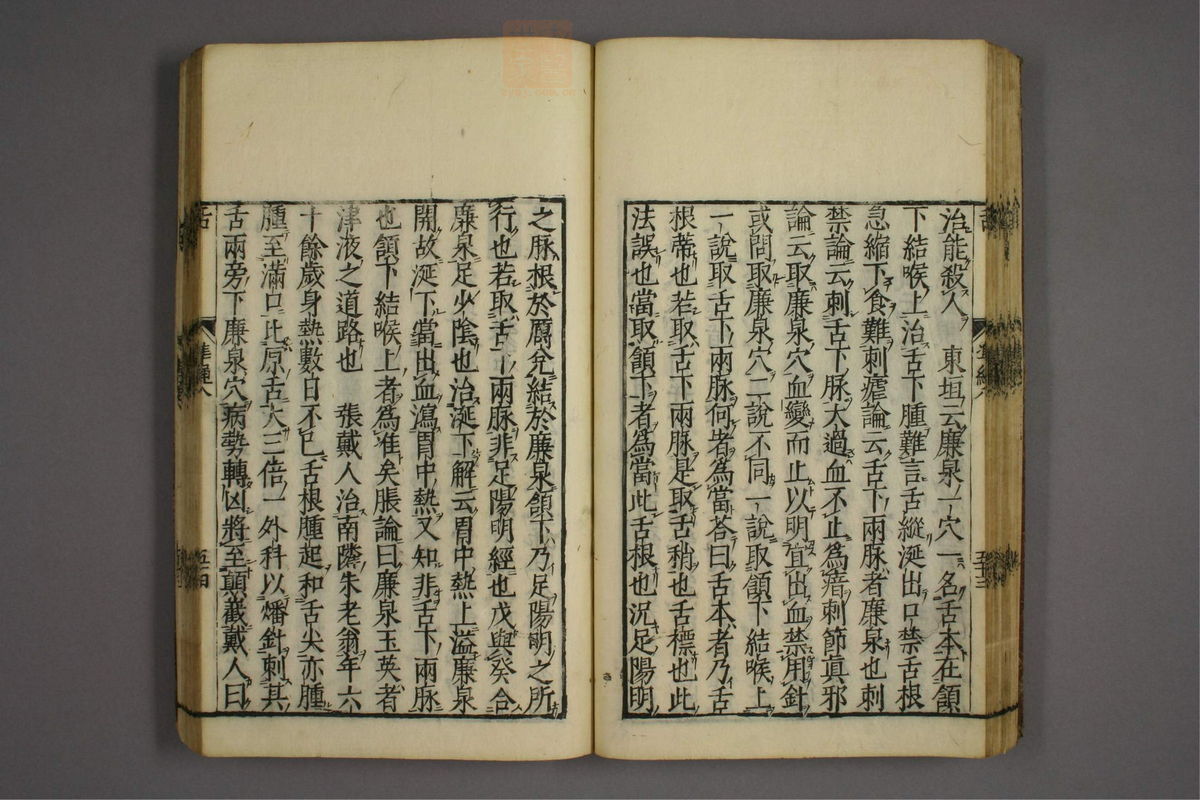 治能殺人　東垣云廉泉一穴一名舌本在頷
下結喉上治舌下腫難言舌縱涎出口禁舌根
急縮下食難刺瘧論云舌下兩脉者廉泉也刺
禁論云刺舌下脉太過血不止為瘖刺節真邪
論云取廉泉穴血變而止以明宜出血禁用針
或問取廉泉穴二說不同一說取頷下結喉上
一說取舌下兩脉何者為當荅曰舌本者乃舌
根蒂也若取舌下兩脉是取舌稍也舌標也此
法誤也當取頷下者為當此舌根也況足陽明
之脉根於厲兌結於廉泉頷下乃足陽明之所
行也若取舌下兩脉非足陽明經也戊與癸合
廉泉足少陰也治涎下解云胃中熱上溢廉泉
開故涎下當出血瀉胃中熱又知非舌下兩脉
也頷下結喉上者為准矣脹論曰廉泉玉英者
津液之道路也　張戴人治南隣朱老翁年六
十餘歲身熱數日不已舌根腫起和舌尖亦腫
腫至滿口比原舌大三倍一外科以燔針刺其
舌兩旁下廉泉穴病勢轉凶將至顛巖戴人曰